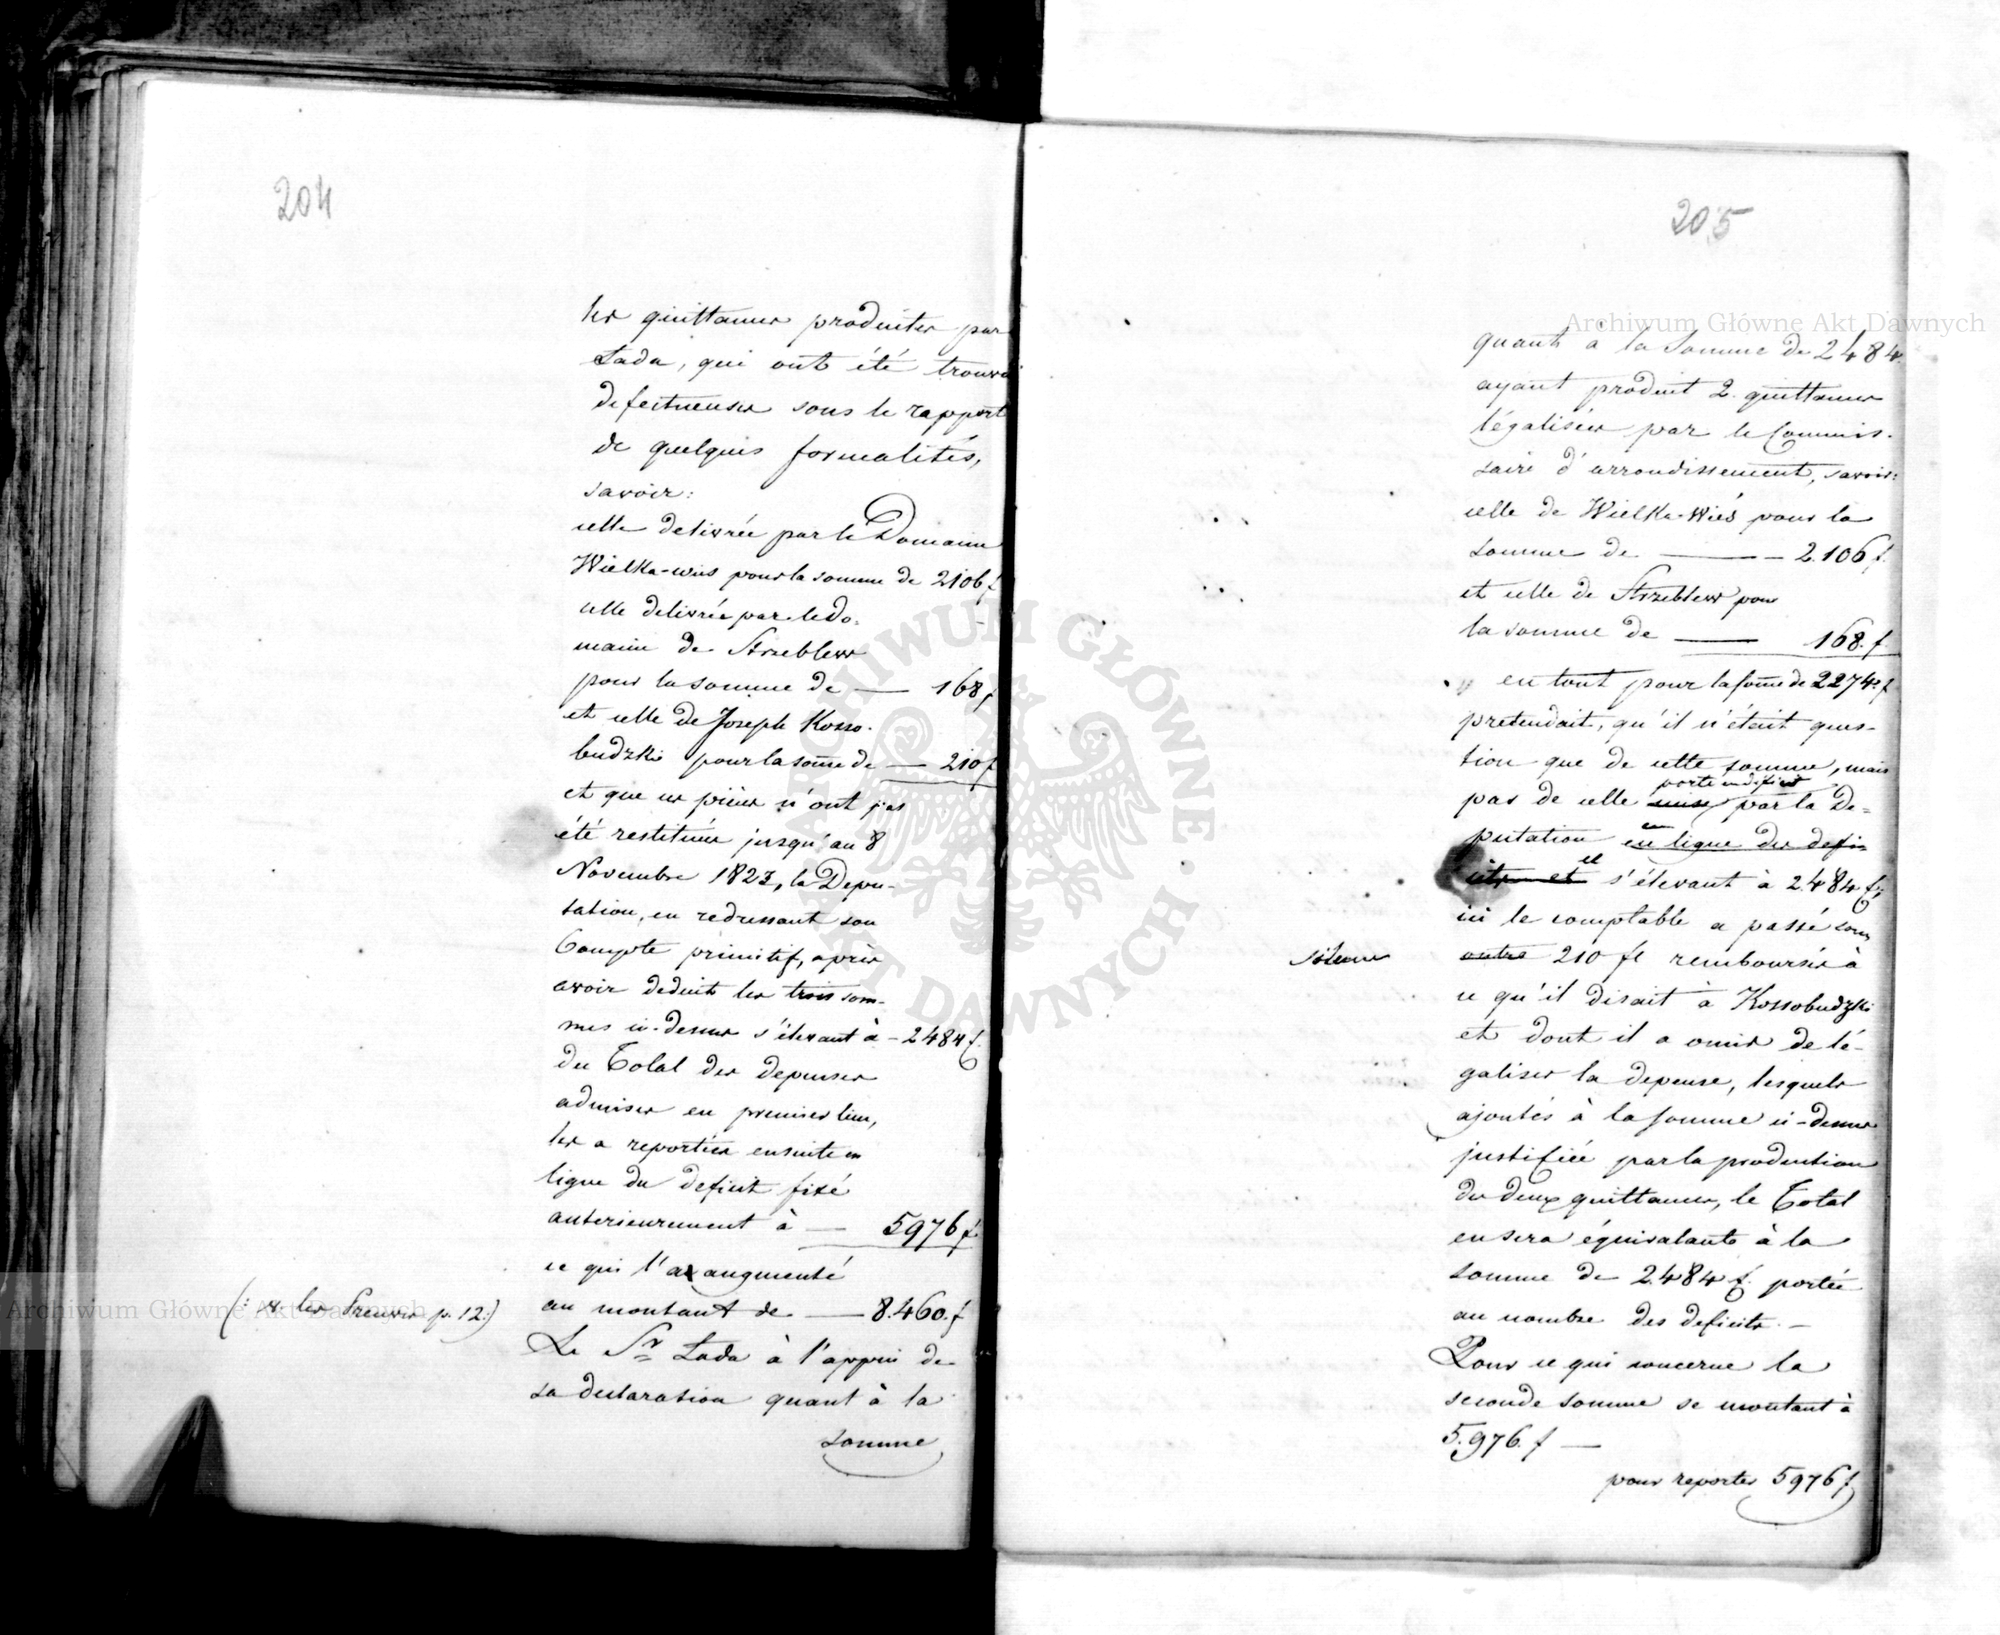 204
les quittances produites par
Lada, qui ont été trouvé
defectueuses sous le rapport
de quelques formalités,
savoir:
celle delivrée par le Domaine
Wielka-wies pour la somme de 2106 f
celle delivrée par le do-
maine de Strzeblew
pour la somme de — 168 f
et celle de Joseph Kosso-
budzki pour la some de — 210 f
et que ces pièces n'ont pas
été restituées jusqu'au 8
Novembre 1823, la Depu-
tation, en redressant son
Compte primitif, après
avoir deduit les trois som-
mes ci-dessus s'élevant à - 2484 f.
du Total des depenses
admises en premier lieu,
les a reportées ensuite en
ligne du deficit fixé
anterieurement à — 5976 f
ce qui l'a augmenté
au montant de — 8.460. f
(: v. les Preuves p. 12:)
Le Sr Lada à l'appui de
sa declaration quant à la
somme
205
quant à la Somme de 2484
ayant produit 2. quittances
légalisées par le Commis-
saire d'arrondissement, savoir:
celle de Wielka-Wieś pour la
somme de — 2.106 f.
et celle de Strzeblew pour
la somme de — 168. f
en tout pour la some de 2274. f
pretendait, qu'il n'était ques-
tion que de cette somme, mais
porté en deficit
pas de celle mise par la De-
putation en ligne des defi-
cits et s'élevant à 2484 f.
ici le comptable a passé sous
silence
outre 210 fl remboursés à
ce qu'il disait à Kossobudzki
et dont il a omis de lé-
galiser la depense, lesquels
ajoutés à la somme ci-dessus
justifiée par la production
des deux quittances, le Total
en sera équivalant à la
somme de 2484 f. portée
au nombre des deficits. —
Pour ce qui concerne la
seconde somme se montant à
5.976. f —
pour reporter 5976 f
Archiwum Główne Akt Dawnych
Archiwum Główne Akt Dawnych
ARCHIWUM GŁÓWNE AKT DAWNYCH